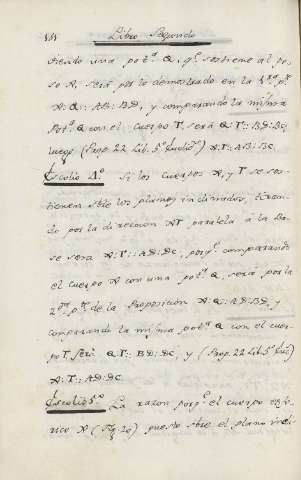 Libro Segundo
tiendo una pot.ª Q, q.º sostiene al pe-
so X, será por lo demostrado en la 1.ª p.te
X:Q::AB:BD, y comparando la misma
Pot.ª Q con el cuerpo T, será Q:T::BD:BC,
luego (Prop. 22 Lib. 5.º Euclid.) X:T::AB:BC.
Escolio 4.º Si los cuerpos X, y T se sos-
tienen sobre los planos inclinados, tiran-
do por la direccion XT paralela à la Ba-
se será X:T::AD:DC, porq.º comparando
el cuerpo X con una pot.ª Q, será por la
2.ª p.te de la Proposicion X:Q::AD:BD, y
comparando la misma pot.ª Q con el cuer-
po T, será Q:T::BD:DC, y (Prop. 22 Lib. 5.º Eucl.)
X:T::AD:DC.
Escolio 5.º La razon porq.º el cuerpo esfe-
rico X (Fig. 20) puesto sobre el plano incli-